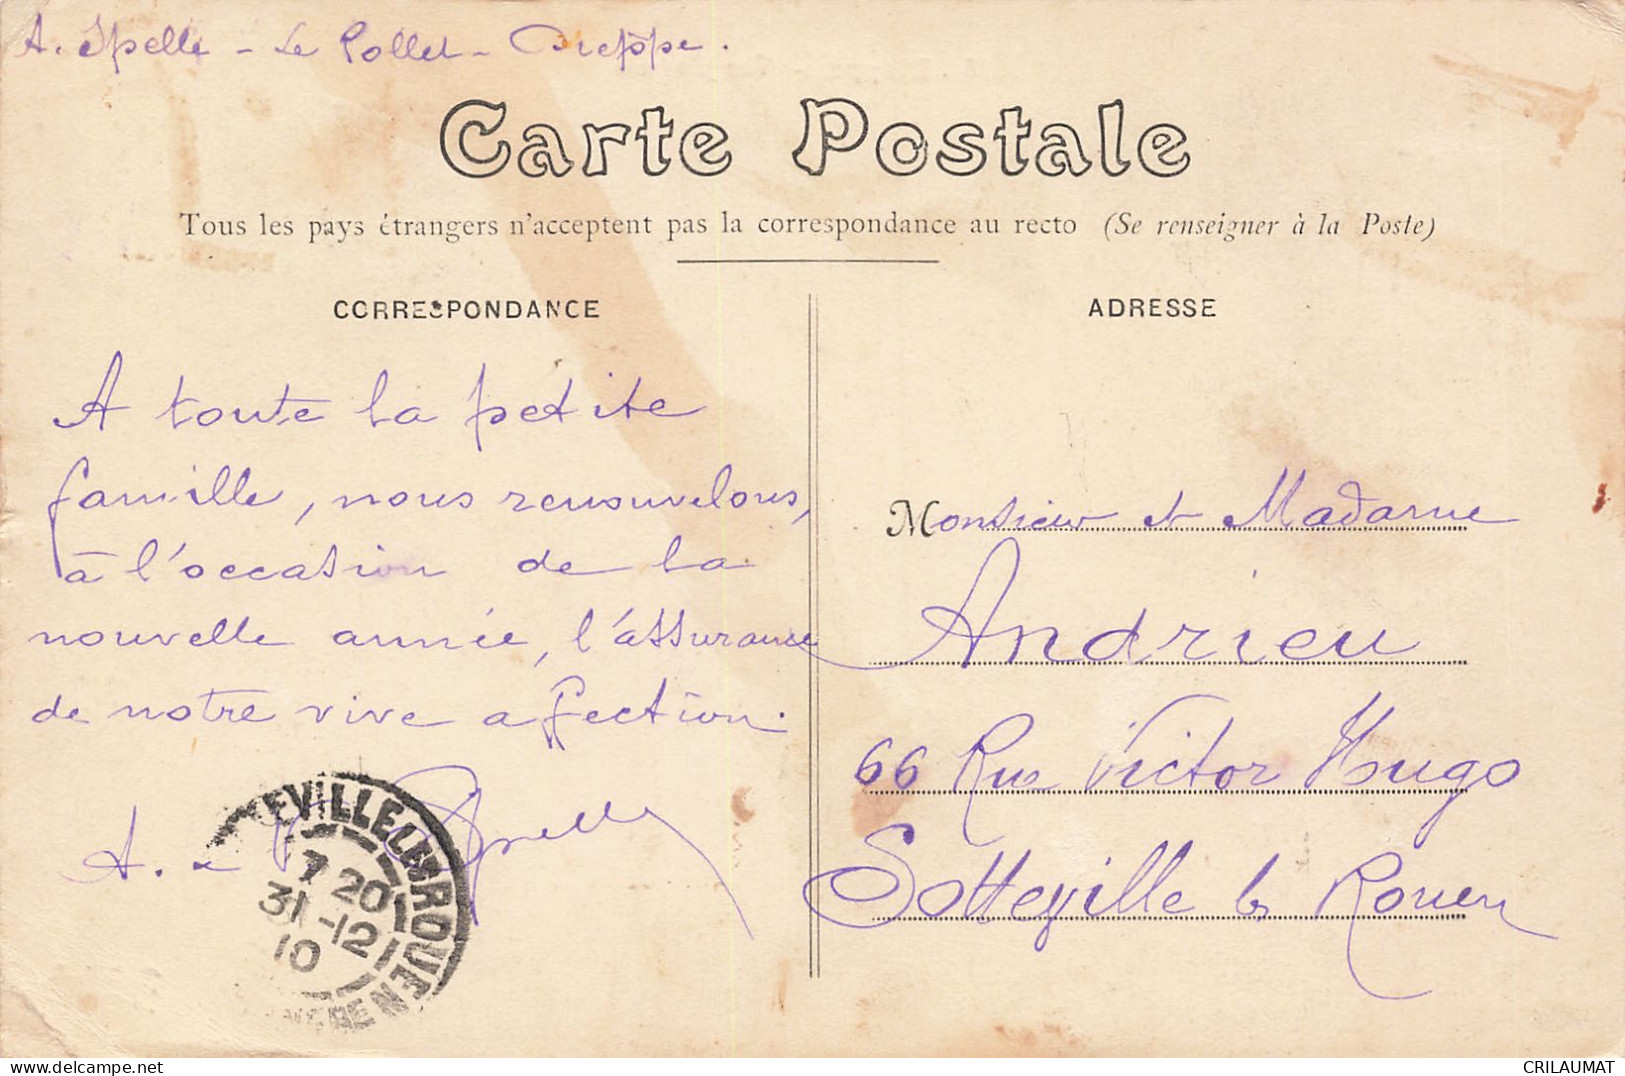 A. Spelle - Le Pollet - Dieppe.
Carte Postale
Tous les pays étrangers n'acceptent pas la correspondance au recto (Se renseigner à la Poste)
CORRESPONDANCE
A toute la petite
famille, nous renouvelons,
à l'occasion de la
nouvelle année, l'assurance
de notre vive affection.
A. Spelle
EVILLE LES ROUEN
7 20
31 -12
10
ADRESSE
Monsieur et Madame
Andrieu
66 Rue Victor Hugo
Sotteville ls Rouen
CRILAUMAT